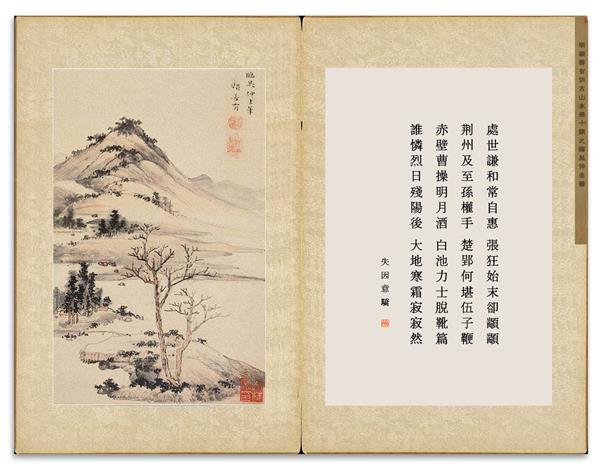 明顧善有仿古山水冊十開之臨吳仲圭筆
處世謙和常自惠 張狂始末卻顛顛
荊州及至孫權手 楚郢何堪伍子鞭
赤壁曹操明月酒 白池力士脫靴篇
誰憐烈日殘陽後 大地寒霜寂寂然
失因意驕
臨吳仲圭筆
顧善有